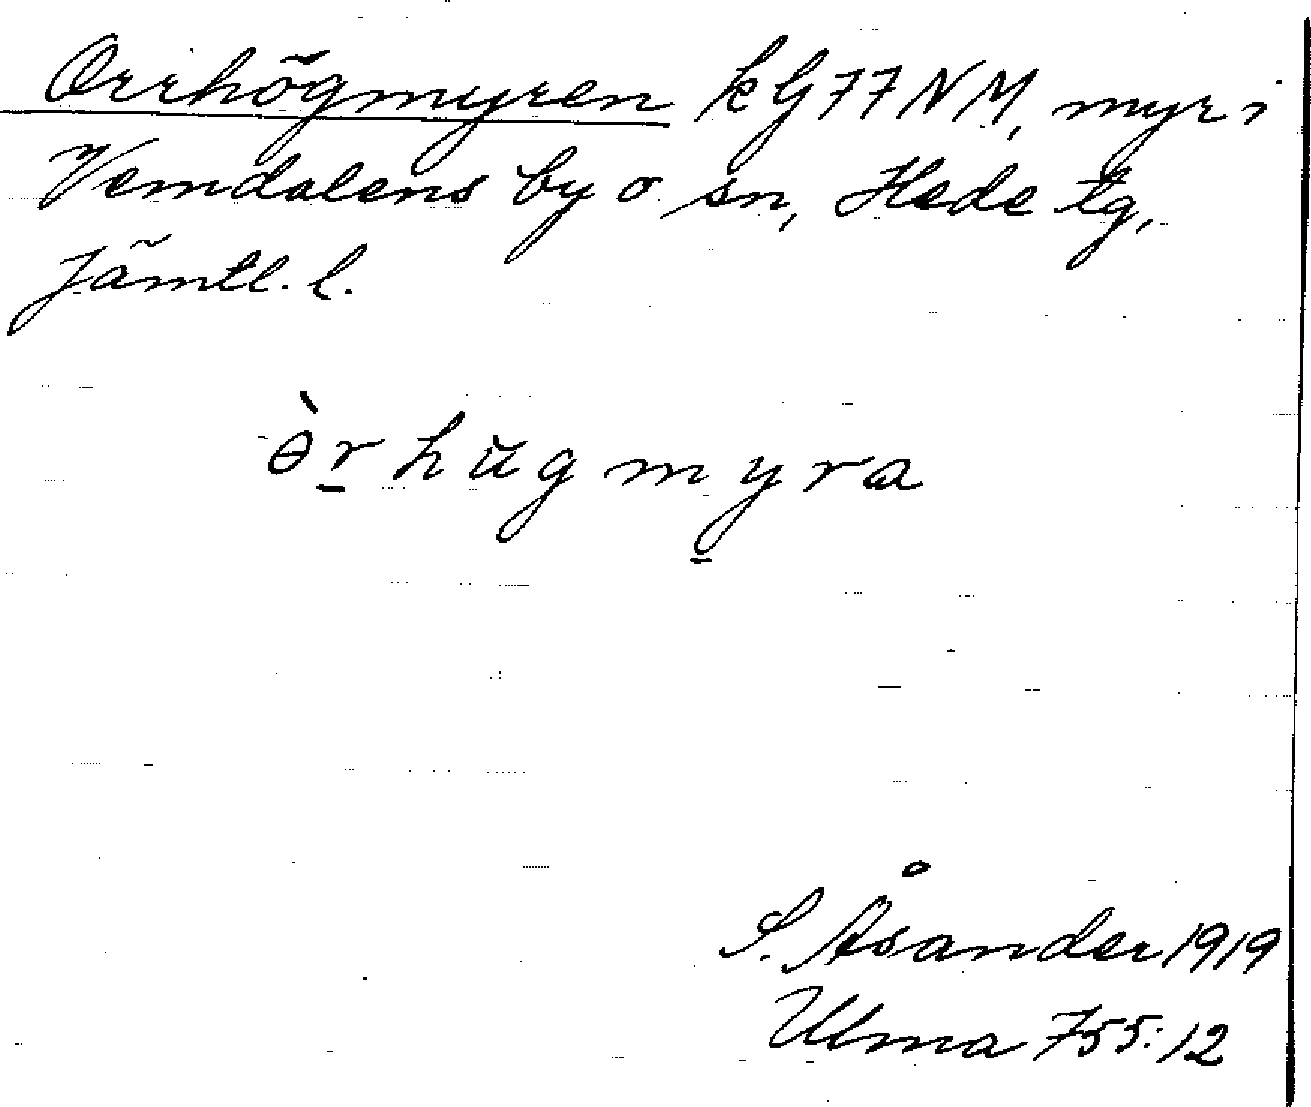 Orrhögmyren kG77NM, myr i
Vemdalens by o sn, Hede tg,
Jämtl. l.
ɵ̀r̲hŭgmy̲ra
S. Åsander 1919
Ulma 755:12